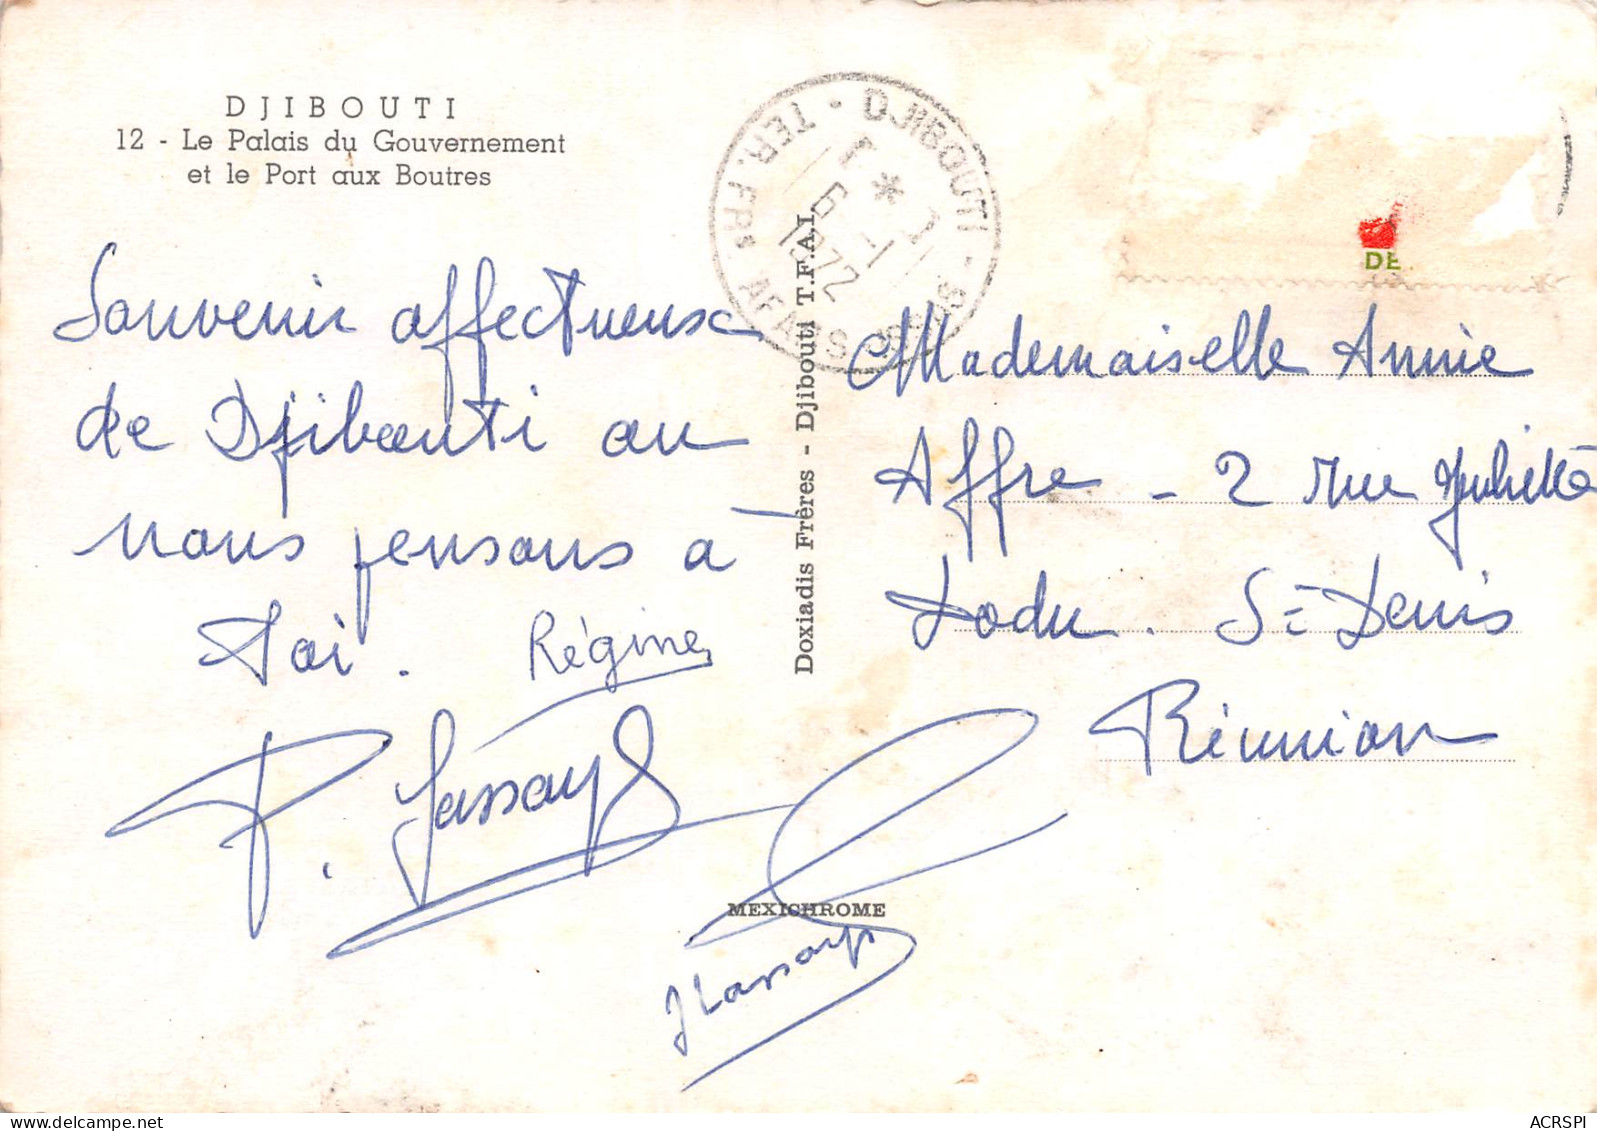 DJIBOUTI
12 - Le Palais du Gouvernement
et le Port aux Boutres
Souvenir affectueux
de Djibouti où
nous pensons à
Toi.
Régine
DJIBOUTI - TER. FRs AFARS
6 -1
1972
DE
Doxiadis Frères - Djibouti T.F.A.I.
Mademoiselle Annie
Affre - 2 rue Juliette
Dodu. St Denis
Réunion
MEXICHROME
ACRSPI